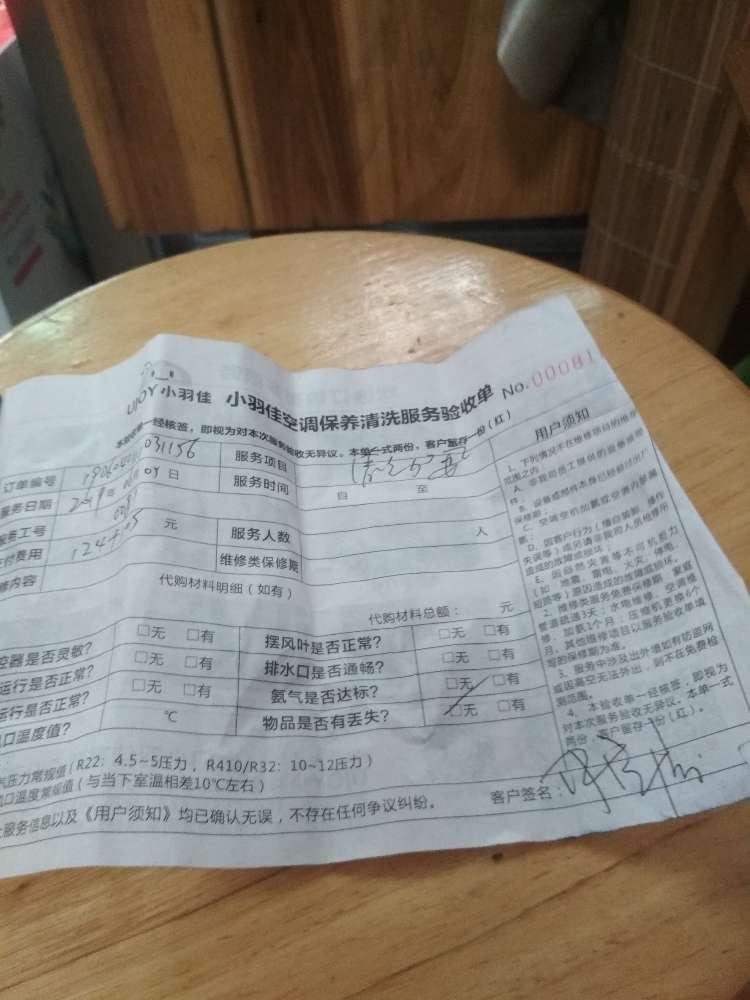 UJOY小羽佳 小羽佳空调保养清洗服务验收单 No.00081
本验收单一经核签，即视为对本次服务验收无异议。本单一式两份，客户留存一份（红）
订单编号 031156 服务项目
服务日期 09日 服务时间 自 至
务工号 服务人数 人
付费用 元 维修类保修期
修内容 代购材料明细（如有）
代购材料总额： 元
控器是否灵敏？ □无 □有 摆风叶是否正常？ □无 □有
运行是否正常？ □无 □有 排水口是否通畅？ □无 □有
运行是否正常？ □无 □有 氨气是否达标？ □无 □有
口温度值？ ℃ 物品是否有丢失？ □无 □有
压力常规值（R22：4.5~5压力，R410/R32：10~12压力）
口温度常规值（与当下室温相差10℃左右）
服务信息以及《用户须知》均已确认无误，不存在任何争议纠纷。
客户签名：
用户须知
1、下列情况不在维修项目的维保
范围之内
A、非我司员工提供的设备或部
件；
B、设备或部件本身已经超过出厂
保修期；
C、空调空机加氟或空调内部漏
氟；
D、因客户行为（擅自装卸、操作
失误等）或另请非我司人员检修所
造成的故障或损坏；
E、因自然灾害等不可抗差力
（如地震、雷电、火灾、停电、
短路等）原因造成的故障或损坏。
2、维修类服务免费保修期，家庭
管道疏通3天；水电维修、空调维
修、加氨1个月；压缩机更换6个
月，其他维修项目以服务验收单填
写的保修期为准。
3、服务中涉及出外墙如有防盗网
或因高空无法外出，则不在免费检
测范围。
4、本验收单一经核签，即视为
对本次服务验收无异议。本单一式
两份，客户留存一份（红）。